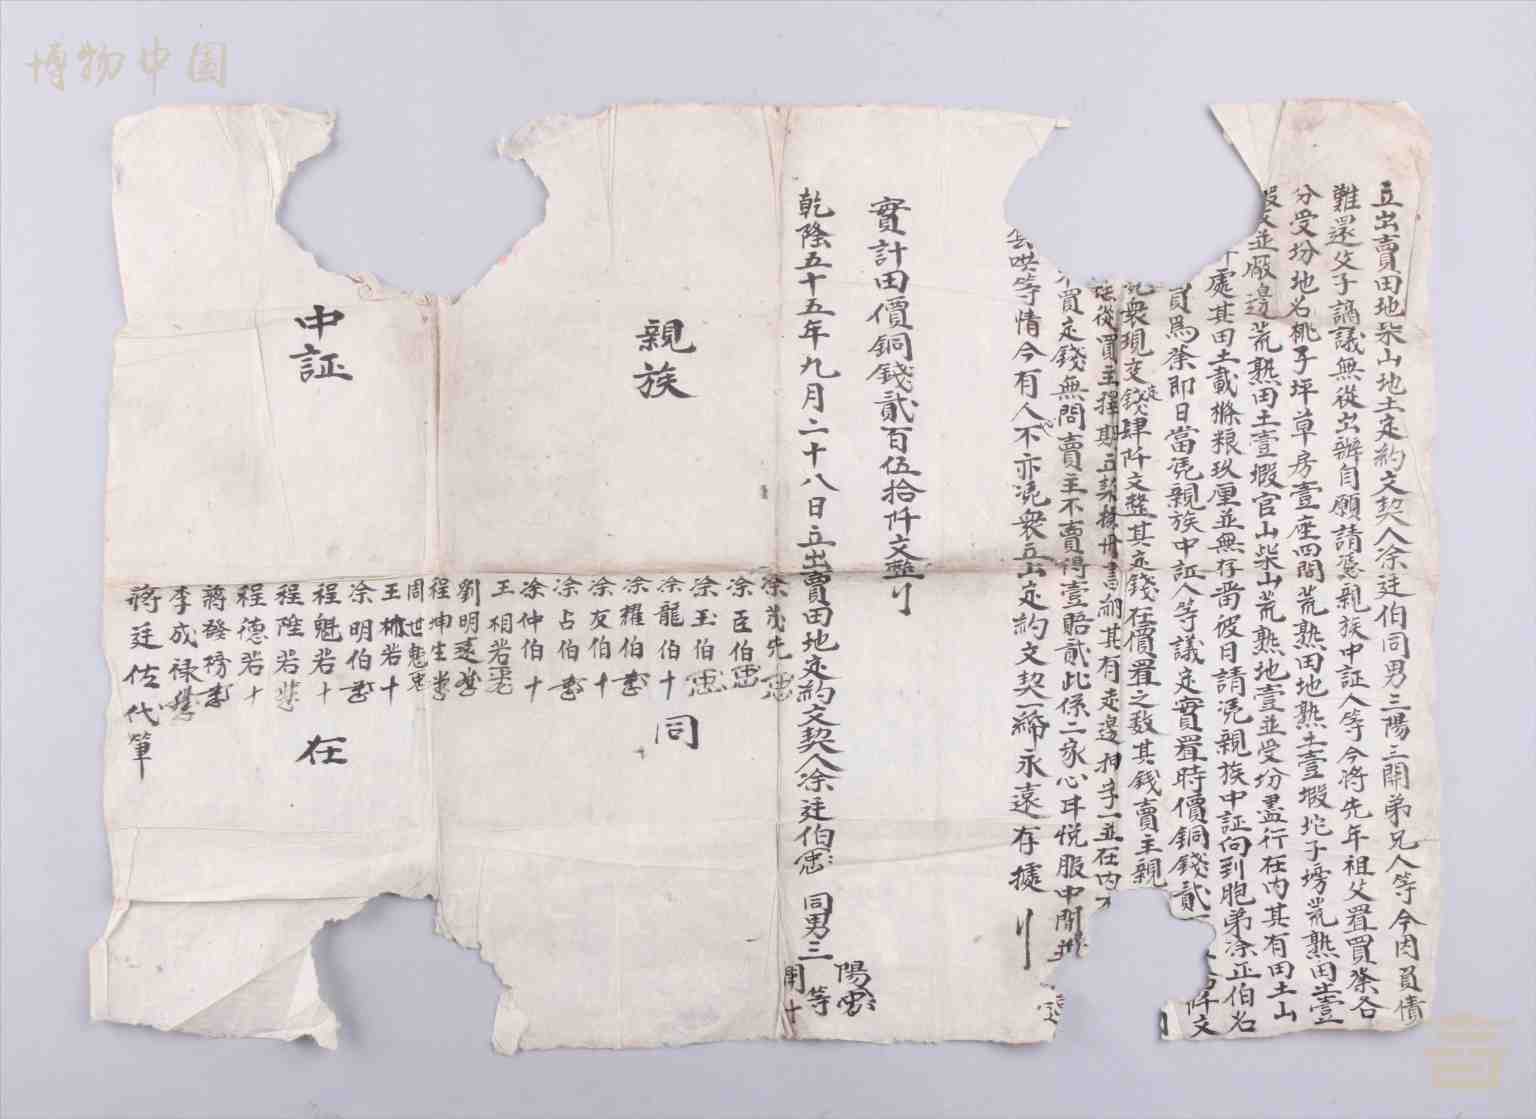 立出賣田地柴山地土定約文契人凃廷伯同男三陽三開弟兄人等今因負債
難還父子謪議無從出辦自願請憑親族中証人等今將先年祖父置買業各
分受坋地名桃子坪草房壹座四間荒熟田地熟土壹塅坨子塝荒熟田土壹
塅並厰邊荒熟田土壹塅官山柴山荒熟地壹並受坋盡行在内其有田土山
處其田土載條粮玖厘並無存畨彼日請凴親族中証向到胞弟凃正伯名
買爲業即日當凴親族中証人等議定實置時價銅錢貳 仟文
凴衆現交錢肆仟文整其定錢在價置之数其錢賣主親
從買主擇期立契 册書納其有走邊抽手一並在内不
買定錢無問賣主不賣得壹賠貳此係二家心甘悦服中間並
哄等情今有人心不亦凴衆立出定約文契一紙永遠存據
實計田價銅錢貳百伍拾仟文整
乾隆五十五年九月二十八日立出賣田地定約文契人凃廷伯 同男三陽 開十 等
親族 同
凃茂先
凃臣伯
凃玉伯
凃龍伯十
凃耀伯
凃友伯十
凃占伯
凃仲伯十
王相若
劉明遠
程坤生
周世魁
中証 在
王 若十
凃明伯
程魁若十
程陞若
程德若十
蔣發榜
李成禄
蔣廷佐代筆
博物中国